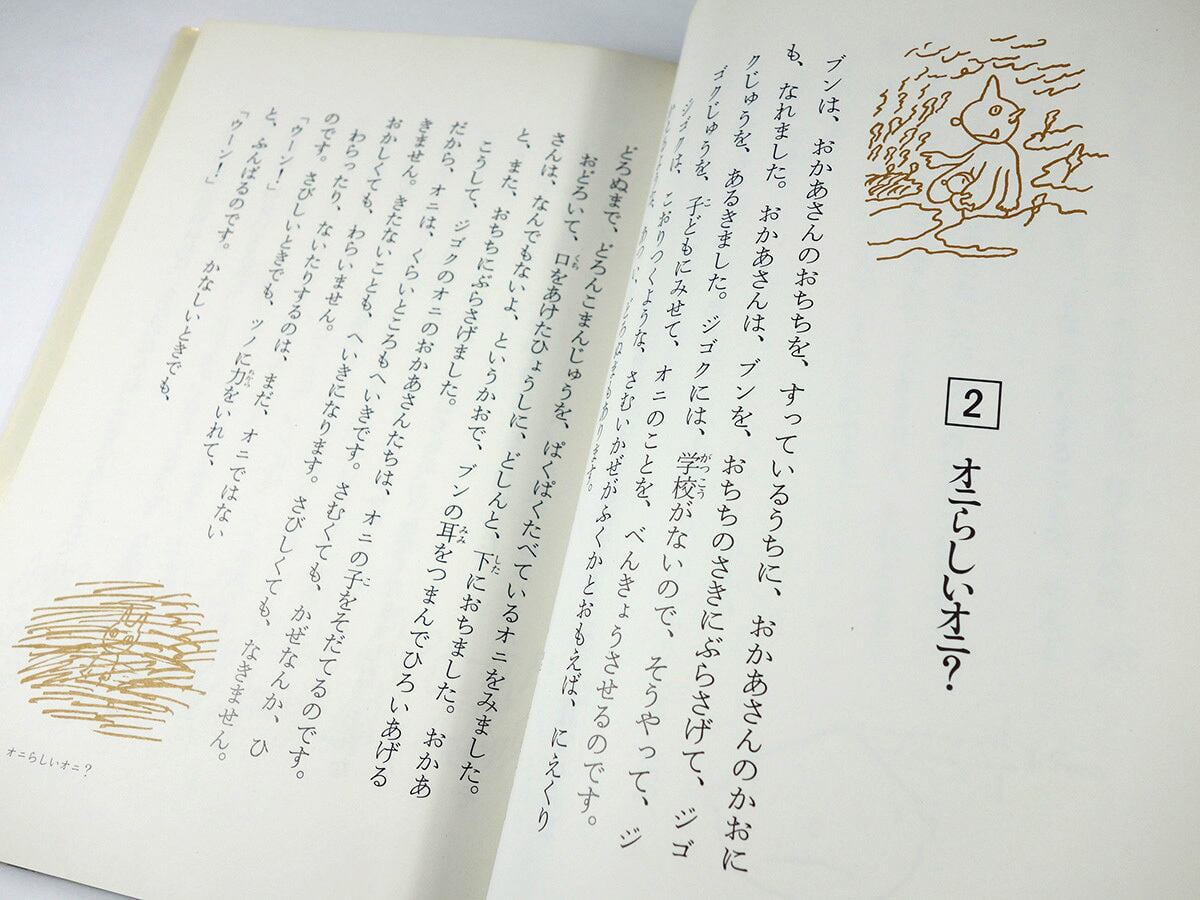 2 オニらしいオニ?
ブンは、おかあさんのおちちを、すっているうちに、おかあさんのかおに
も、なれました。おかあさんは、ブンを、おちちのさきにぶらさげて、ジゴ
クじゅうを、あるきました。ジゴクには、学校がないので、そうやって、ジ
ゴクじゅうを、子どもにみせて、オニのことを、べんきょうさせるのです。
ジゴクは、こおりつくような、さむいかぜがふくかとおもえば、にえくり
あつい、どろぬまもあります。
どろぬまで、どろんこまんじゅうを、ぱくぱくたべているオニをみました。
おどろいて、口をあけたひょうしに、どしんと、下におちました。おかあ
さんは、なんでもないよ、というかおで、ブンの耳をつまんでひろいあげる
と、また、おちちにぶらさげました。
こうして、ジゴクのオニのおかあさんたちは、オニの子をそだてるのです。
だから、オニは、くらいところもへいきです。さむくても、かぜなんか、ひ
きません。きたないことも、へいきになります。さびしくても、なきません。
おかしくても、わらいません。
わらったり、ないたりするのは、まだ、オニではない
のです。さびしいときでも、ツノに力をいれて、
「ウーン!」
と、ふんばるのです。かなしいときでも、
「ウーン!」
オニらしいオニ?